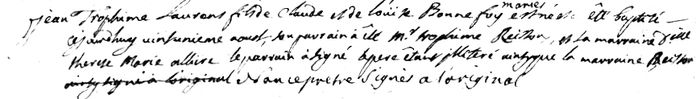 mariés
jean trophime Laurens fils de Claude et de louise Bonne foy est né et a été baptisé
ce jourdhuy vint unieme aoust, son parrain a été Mr trophime Reisson, et la marraine Dlle
therese Marie allier le parrain a signé le pere illiteré aintyque la marraine Reisson
a loriginal prêtre signés a loriginal